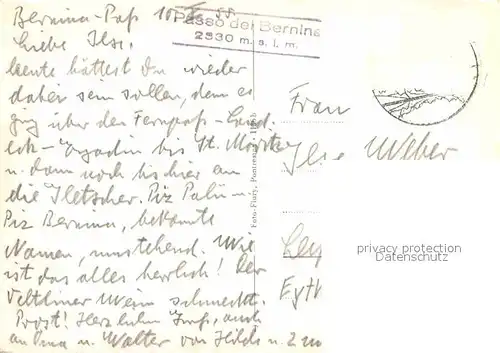 Bernina-Paß 10.
Passo del Bernina
2330 m. s. l. m.
Liebe Ilse.
heute hättest Du wieder
dabei sein sollen, denn es
ging über den Fernpaß - Land-
eck - Engadin bis St. Moritz
u. dann noch bis hier an
die Gletscher. Piz Palü u.
Piz Bernina, bekannte
Namen, umstehend. Wie
ist das alles herrlich! Der
Veltliner Wein schmeckt.
Prost! Herzlichen Gruß, auch
an Oma u. Walter von Hilde u.
Foto-Flury, Pontresina
Frau
Ilse Weber
privacy protection
Datenschutz